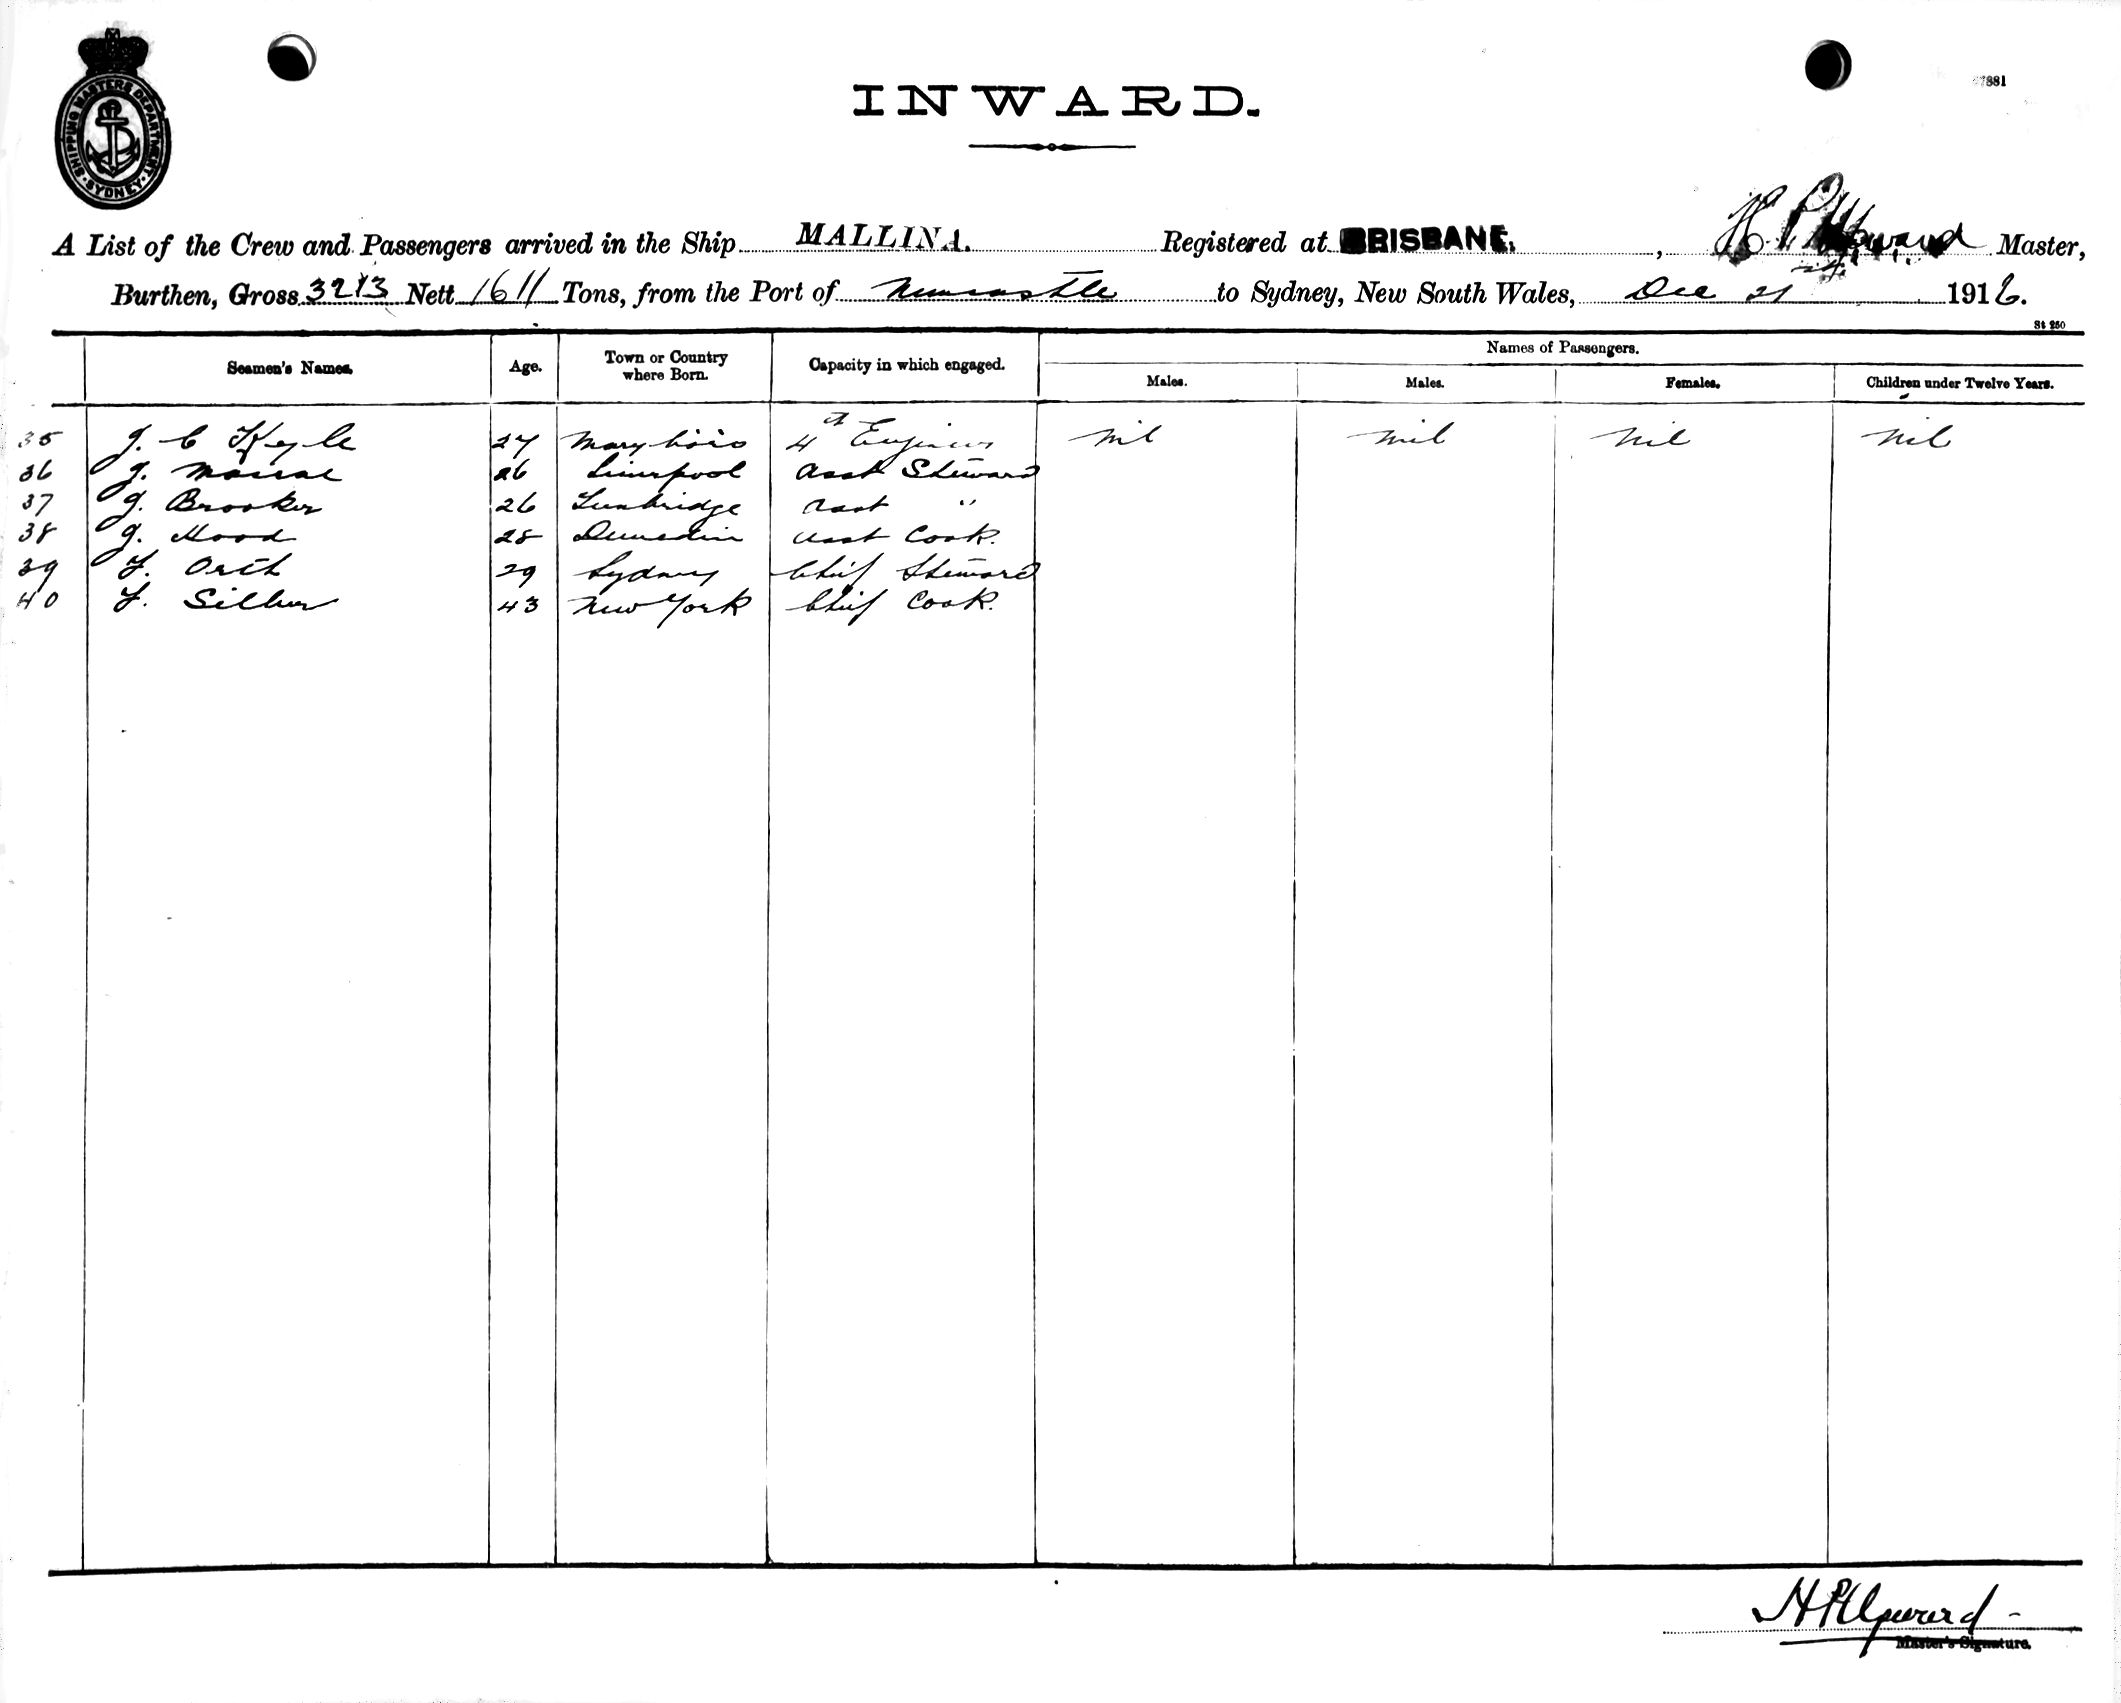 SHIPPING MASTERS DEPARTMENT SYDNEY
7881
INWARD.
A List of the Crew and Passengers arrived in the Ship MALLINA. Registered at BRISBANE, H. P. Upward Master,
Burthen, Gross 3213 Nett 1611 Tons, from the Port of Newcastle to Sydney, New South Wales, Dec 21 1916.
St 250
Seamen's Names. Age. Town or Country where Born. Capacity in which engaged. Names of Passengers.
Males. Males. Females. Children under Twelve Years.
35 J. C Kyle 27 Maryboro 4th Engineer nil nil nil nil
36 J. 26 Liverpool Asst Steward
37 G. Brooker 26 Tunbridge Asst "
38 G. Hood 28 Dunedin Asst Cook.
39 F. Orth 29 Sydney Chief Steward
40 F. 43 New York Chief Cook.
H P Upward
Master's Signature.